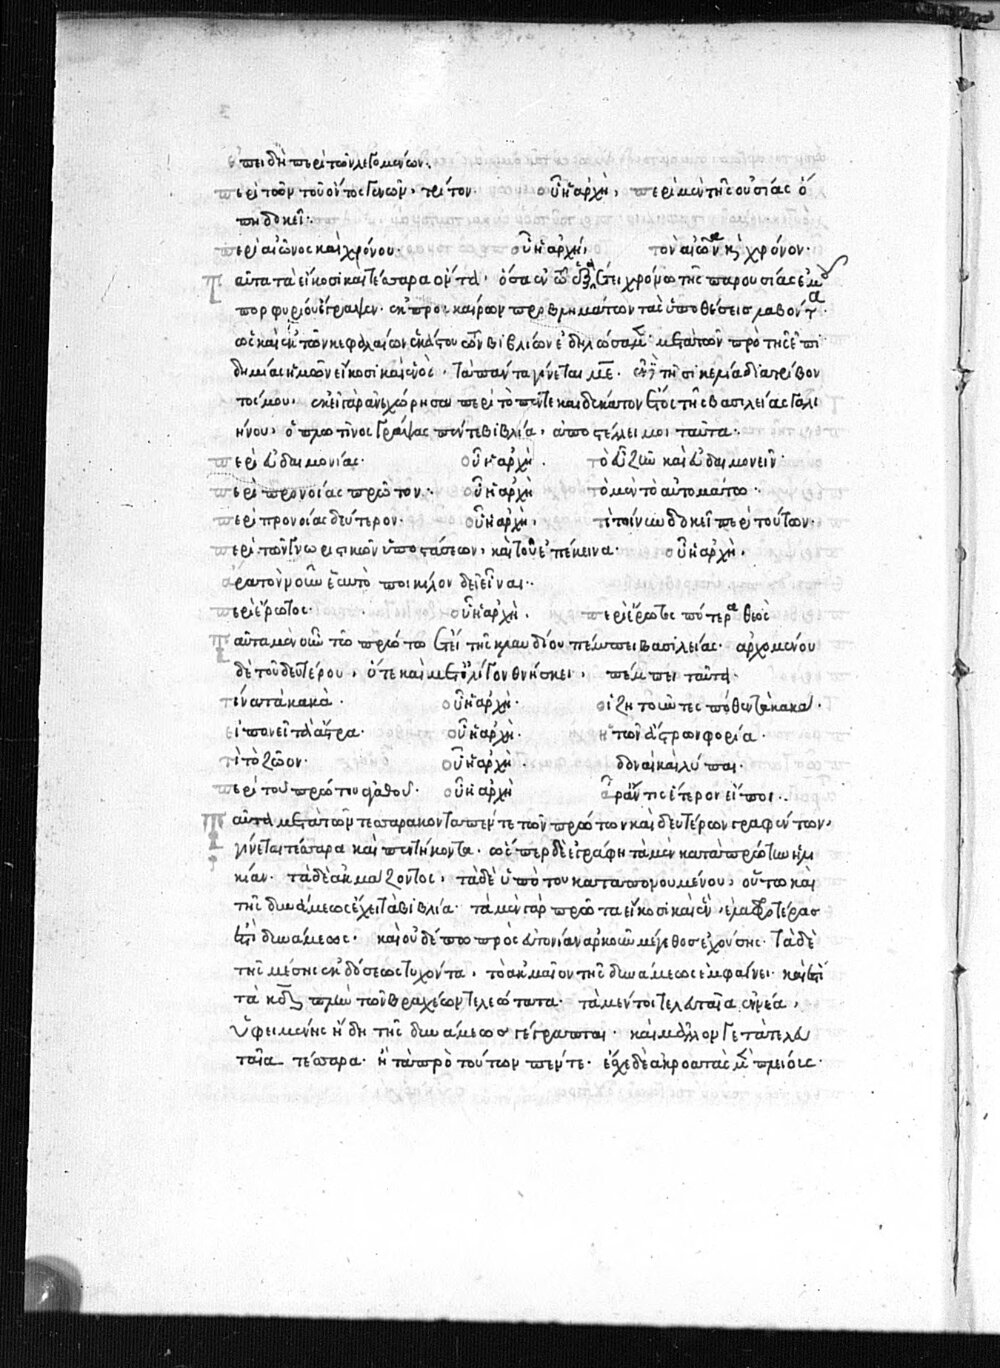 ἐπειδὴ περὶ τῶν λεγομένων.
περὶ τῶν τοῦ ὄντος γενῶν, τρίτον· οὗ ἡ ἀρχή, περὶ μὲν τῆς οὐσίας ὅ
πῃ δοκεῖ:
περὶ αἰῶνος καὶ χρόνου· οὗ ἡ ἀρχή, τὸν αἰῶνα κ χρόνον·
Ταῦτα τὰ εἴκοσι καὶ τέσσαρα ὄντα· ὅσα ἐν τῷ ἑξαέτει χρόνῳ τῆς παρουσίας ἐμοῦ
πορφυρίου ἔγραψεν· ἐκ προσκαίρων προβλημάτων τὰς ὑποθέσεις λαβόντα·
ὡς καὶ ἐκ τῶν κεφαλαίων ἑκάστου τῶν βιβλίων ἐδηλώσαμεν· μετὰ τῶν πρὸ τῆς ἐπι
δημίας ἡμῶν εἴκοσι καὶ ἑνός· τὰ πάντα γίνεται με. ἐν δὲ τῇ σικελίᾳ διατρίβον
τός μου, ἐκεῖ γὰρ ἀνεχώρησα περὶ τὸ πέντε καὶ δέκατον ἔτος τῆς βασιλείας γαλι
ήνου, ὁ πλωτῖνος γράψας πέντε βιβλία, ἀποστέλλει μοι ταῦτα·
περὶ εὐδαιμονίας· οὗ ἡ ἀρχή. τὸ εὖ ζῶν καὶ εὐδαιμονεῖν·
περὶ προνοίας πρῶτον· οὗ ἡ ἀρχή τὸ μὲν τὸ αὐτομάτῳ·
περὶ προνοίας δεύτερον· οὗ ἡ ἀρχή, τί τοίνυν δοκεῖ περὶ τούτων·
περὶ τῶν γνωριστικῶν ὑποστάσεων, καὶ τοῦ ἐπέκεινα· οὗ ἡ ἀρχή,
ἆρα τὸ νοοῦν ἑαυτὸ ποικίλον δεῖ εἶναι·
περὶ ἔρωτος· οὗ ἡ ἀρχή. περὶ ἔρωτος πότερα θεὸς
Ταῦτα μὲν οὖν τῷ πρώτῳ ἔτει τῆς κλαυδίου πέμπει βασιλείας· ἀρχομένου
δὲ τοῦ δευτέρου, ὅτε καὶ μετ' ὀλίγον θνήσκει, πέμπει ταῦτα·
τίνα τὰ κακά· οὗ ἡ ἀρχή· οἱ ζητοῦντες πόθεν τὰ κακά·
εἰ ποιεῖ τὰ ἄστρα· οὗ ἡ ἀρχή· ἡ τῶν ἄστρων φορία·
τί τὸ ζῷον· οὗ ἡ ἀρχή ἡδοναὶ καὶ λύπαι·
περὶ τοῦ πρώτου ἀγαθοῦ· οὗ ἡ ἀρχή ἆρ' ἄν τις ἕτερον εἴποι·
Ταῦτα μετὰ τῶν τεσσαράκοντα πέντε τῶν πρώτων καὶ δευτέρων γραφέντων,
γίνεται τέσσαρα καὶ πεντήκοντα· ὥσπερ δὲ ἐγράφη τὰ μὲν κατὰ πρώτην ἡλι
κίαν· τὰ δὲ ἀκμάζοντος, τὰ δὲ ὑπὸ τοῦ καταπονουμένου, οὕτω καὶ
τῆς δυνάμεως ἔχει τὰ βιβλία· τὰ μὲν γὰρ πρῶτα εἴκοσι καὶ ἕν, ἐλαφροτέρας
ἐστὶ δυνάμεως· καὶ οὐδέπω πρὸς εὐτονίαν ἀρκοῦν μέγεθος ἐχούσης· τὰ δὲ
τῆς μέσης ἐκδόσεως τυχόντα, τὸ ἀκμαῖον τῆς δυνάμεως ἐμφαίνει· καὶ ἔστι
τὰ κδ πλὴν τῶν βραχέων τελεώτατα· τὰ μέντοι τελευταῖα ἐννέα,
ὑφειμένης ἤδη τῆς δυνάμεως γέγραπται· καὶ μᾶλλόν γε τὰ τελευ
ταῖα τέσσαρα· ἢ τὰ πρὸ τούτων πέντε· ἔσχε δὲ ἀκροατὰς μὲν πλείους·